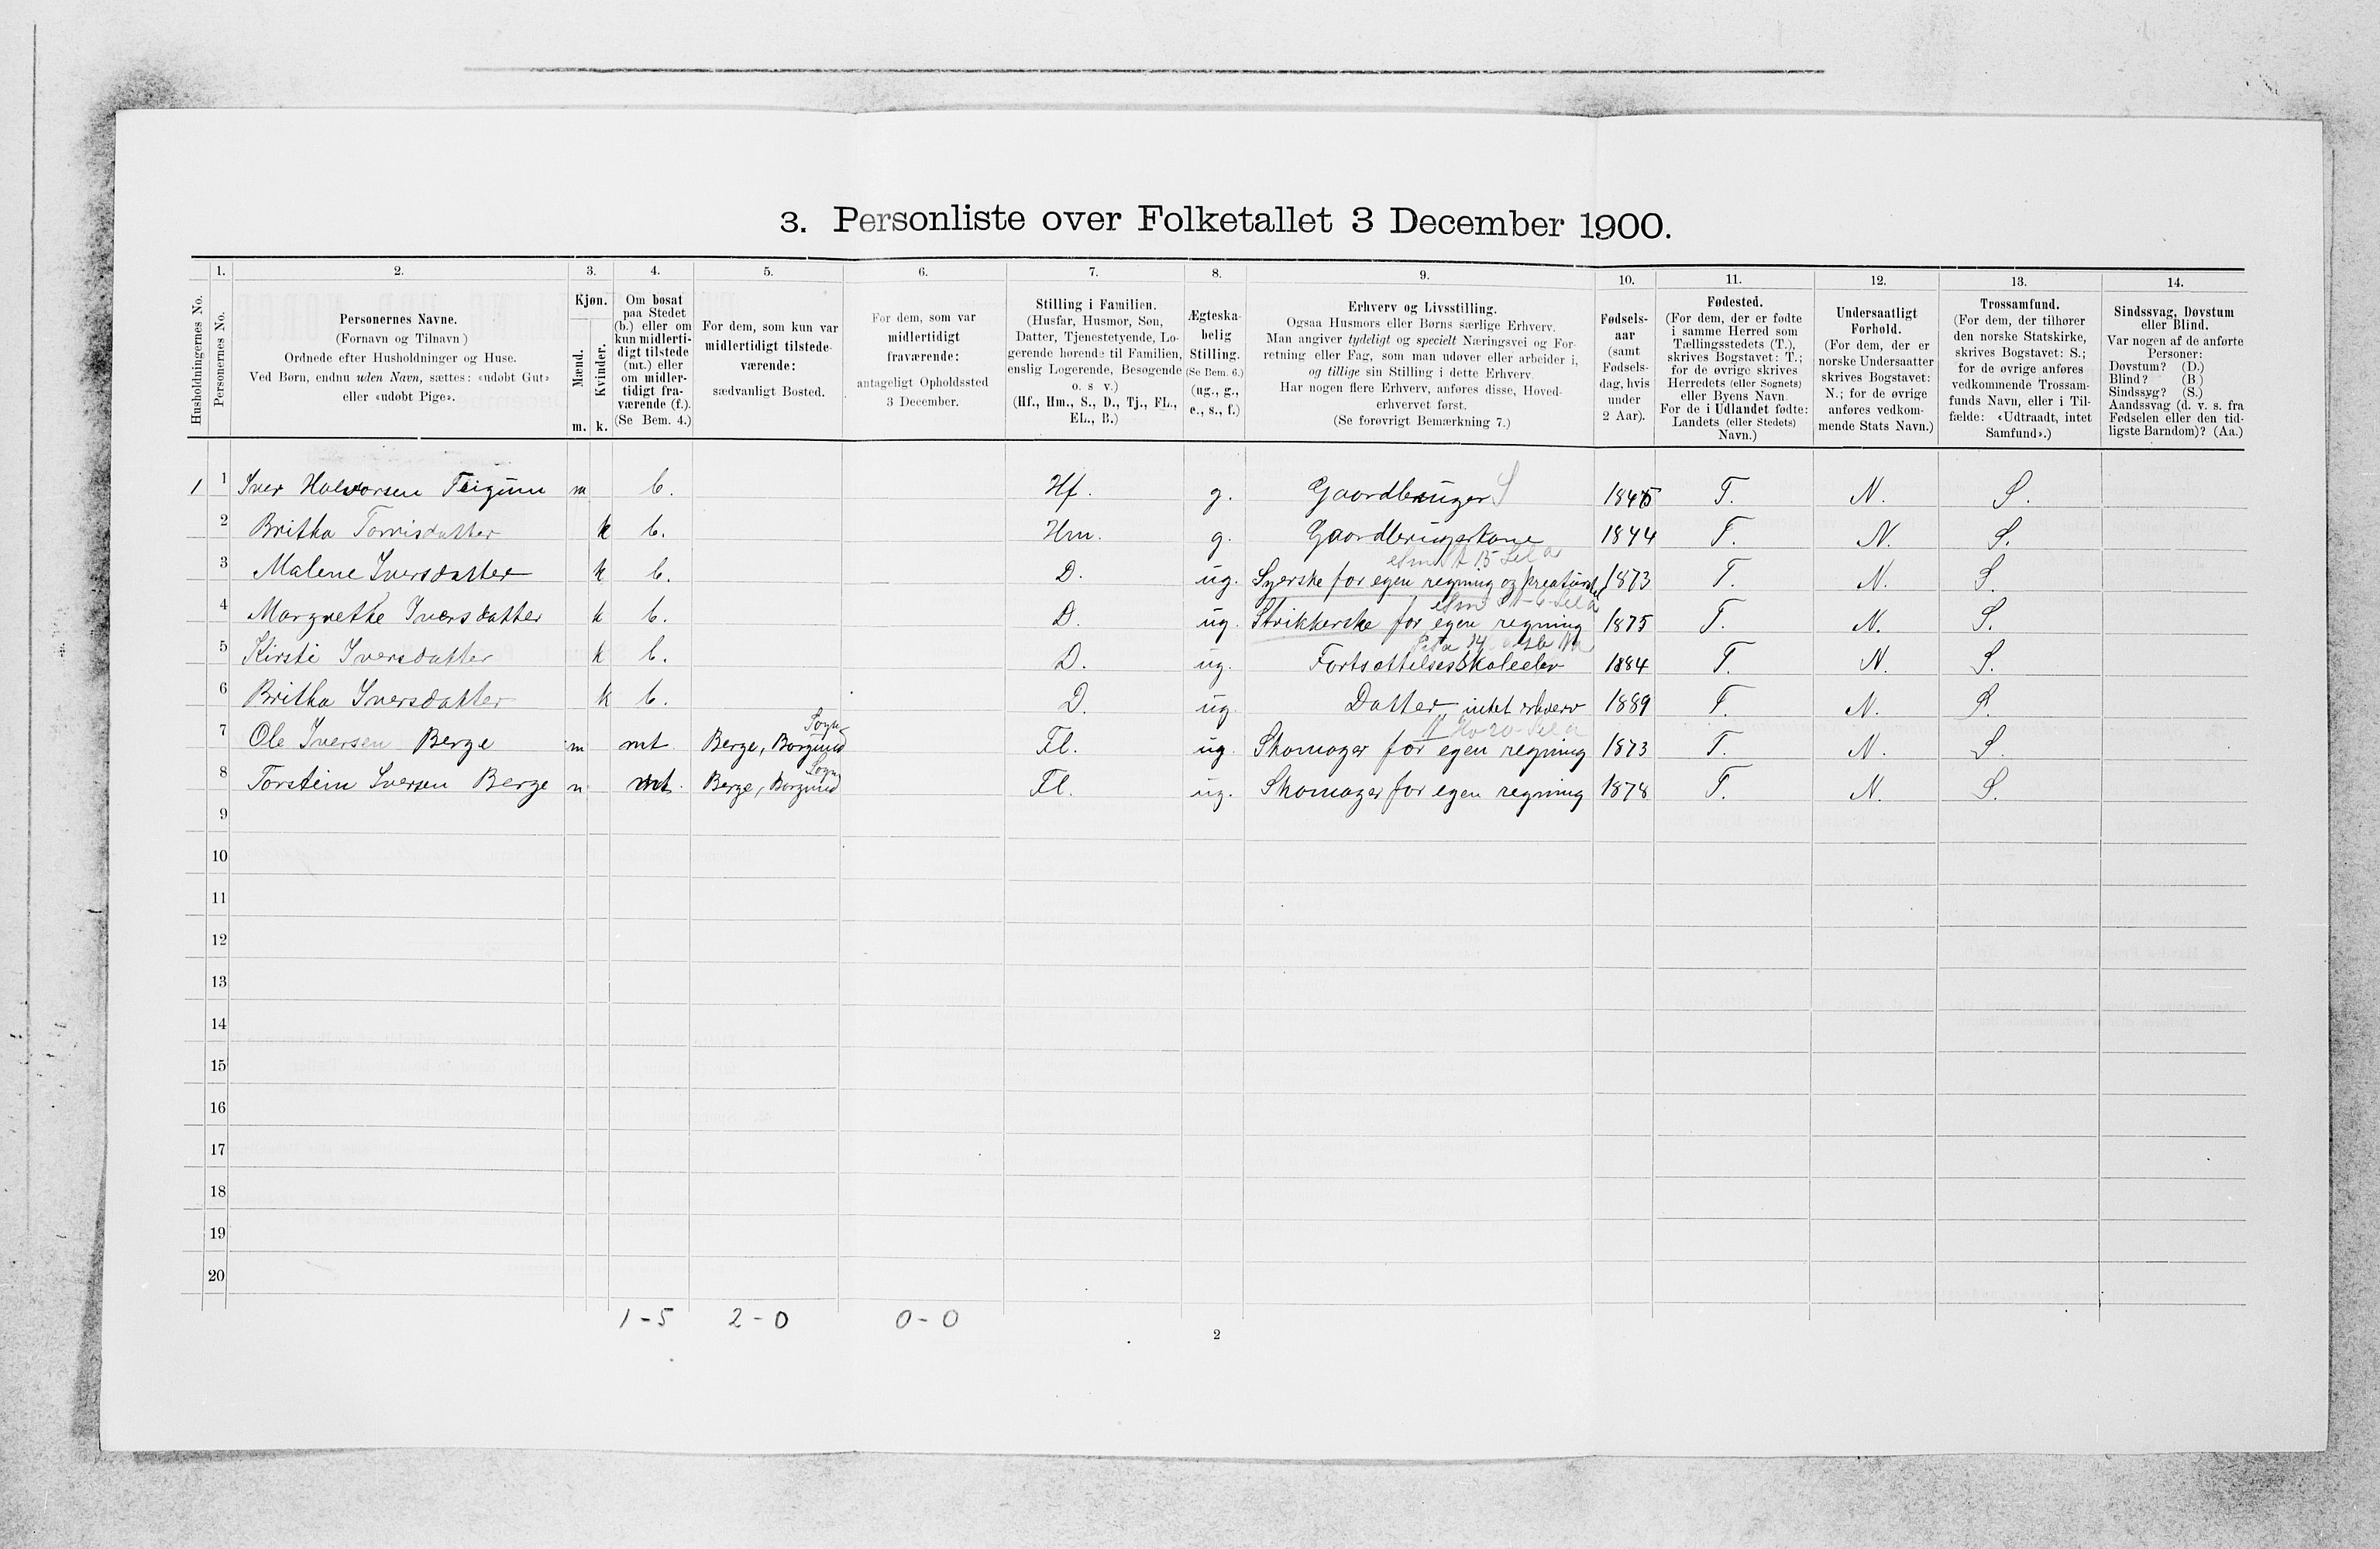 3. Personliste over Folketallet 3 December 1900.
1. 2. 3. 4. 5. 6. 7. 8. 9. 10. 11. 12. 13. 14.
Husholdningernes No.
Personernes No.
Personernes Navne.
(Fornavn og Tilnavn)
Ordnede efter Husholdninger og Huse.
Ved Børn, endnu uden Navn, sættes: «udøbt Gut»
eller «udøbt Pige».
Kjøn.
Mænd.
Kvinder.
m. k.
Om bosat
paa Stedet
(b.) eller om
kun midlerti-
digt tilstede
(mt.) eller
om midler-
tidigt fra-
værende (f.).
(Se Bem. 4.)
For dem, som kun var
midlertidigt tilstede-
værende:
sædvanligt Bosted.
For dem, som var
midlertidigt
fraværende:
antageligt Opholdssted
3 December.
Stilling i Familien.
(Husfar, Husmor, Søn,
Datter, Tjenestetyende, Lo-
gerende hørende til Familien,
enslig Logerende, Besøgende
o. s v.)
(Hf., Hm., S., D., Tj., FL.,
EL., B.)
Ægteska-
belig
Stilling.
(Se Bem. 6.)
(ug., g.,
e., s., f.)
Erhverv og Livsstilling.
Ogsaa Husmors eller Børns særlige Erhverv.
Man angiver tydeligt og specielt Næringsvei og For-
retning eller Fag, som man udøver eller arbeider i,
og tillige sin Stilling i dette Erhverv.
Har nogen flere Erhverv, anføres disse, Hoved-
erhvervet først.
(Se forøvrigt Bemærkning 7.)
Fødsels-
aar
(samt
Fødsels-
dag, hvis
under
2 Aar).
Fødested.
(For dem, der er fødte
i samme Herred som
Tællingsstedets (T.),
skrives Bogstavet: T.;
for de øvrige skrives
Herredets (eller Sognets)
eller Byens Navn.
For de i Udlandet fødte:
Landets (eller Stedets)
Navn.)
Undersaatligt
Forhold.
(For dem, der er
norske Undersaatter
skrives Bogstavet:
N.; for de øvrige
anføres vedkom-
mende Stats Navn.)
Trossamfund.
(For dem, der tilhører
den norske Statskirke,
skrives Bogstavet: S.;
for de øvrige anføres
vedkommende Trossam-
funds Navn, eller i Til-
fælde: «Udtraadt, intet
Samfund».)
Sindssvag, Døvstum
eller Blind.
Var nogen af de anførte
Personer:
Døvstum? (D.)
Blind? (B)
Sindssyg? (S.)
Aandssvag (d. v. s. fra
Fødselen eller den tid-
ligste Barndom)? (Aa.)
1 1 Iver Halvorsen Feigum m b. Hf. g. Gaardbruger S 1845 T. N. S.
2 Britha Tomisdatter k b. Hm. g. Gaardbrugerkone 1844 T. N. S.
3 Malene Iversdatter k b. D. ug. Syerske for egen regning og kreaturst. 1873 T. N. S.
4 Margrethe Iversdatter k b. D. ug. Strikkerske for egen regning 1875 T. N. S.
5 Kirsti Iversdatter k b. D. ug. Fortsættelsesskoleelev 1884 T. N. S.
6 Britha Iversdatter k b. D. ug. Datter, intet erhverv 1889 T. N. S.
7 Ole Iversen Berge m mt Berge, Borgund Sogn Fl. ug. Skomager for egen regning 1873 T. N. S.
8 Torstein Iversen Berge m mt. Berge, Borgund Sogn Fl. ug. Skomager for egen regning 1878 T. N. S.
9
10
11
12
13
14
15
16
17
18
19
20
1-5 2-0 0-0
2